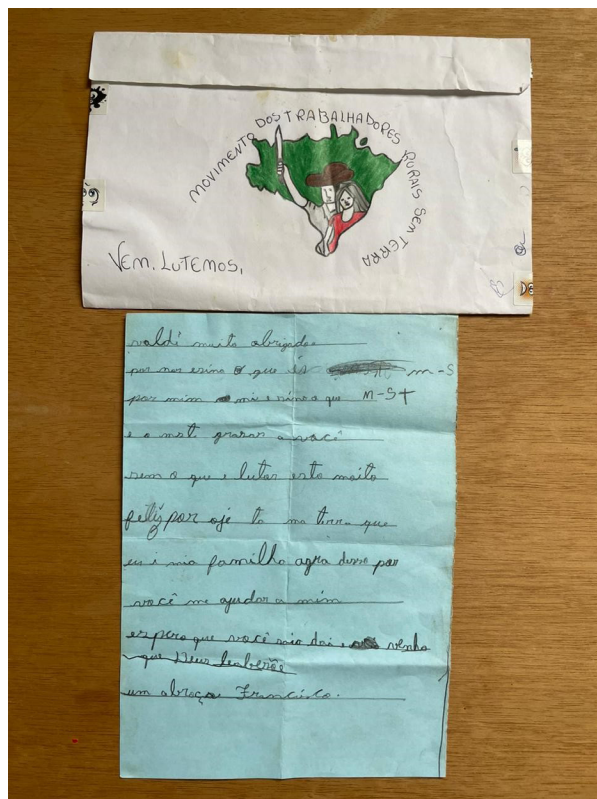 MOVIMENTO DOS TRABALHADORES RURAIS SEM TERRA
VEM, LUTEMOS,
valdi muito obrigado
por nos esino o que és m-S
por mim mi e nino o que m-St
e o mst grasas a você
sem o que e lutar esto muito
feliz por oje to na terra que
eu i mia familha agra desso por
você me ajudar a mim
espero que você saia dai e venha
que Deus
um abraço Francisco.